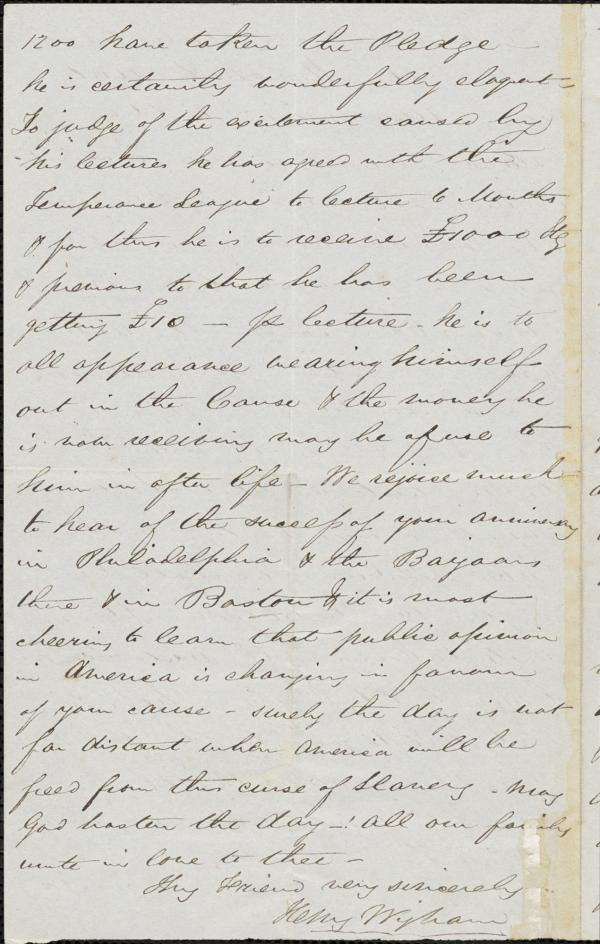 1200 have taken the Pledge
he is certainly wonderfully eloquent
To judge of the excitement caused by
his lectures he has agreed with the
Temperance League to lecture 6 Months
& for this he is to receive £1000 Stg
& previous to that he has been
getting £10 — pr lecture - he is to
all appearance wearing himself
out in the Cause & the money he
is now receiving may be of use to
him in after life - We rejoice much
to hear of the success of your anniversary
in Philadelphia & the Bazaars
there & in Boston & it is most
cheering to learn that public opinion
in America is changing in favour
of your cause - surely the day is not
far distant when America will be
freed from this curse of Slavery - may
God hasten the day -! all our family
unite in love to thee -
Thy Friend very sincerely
Henry Wigham